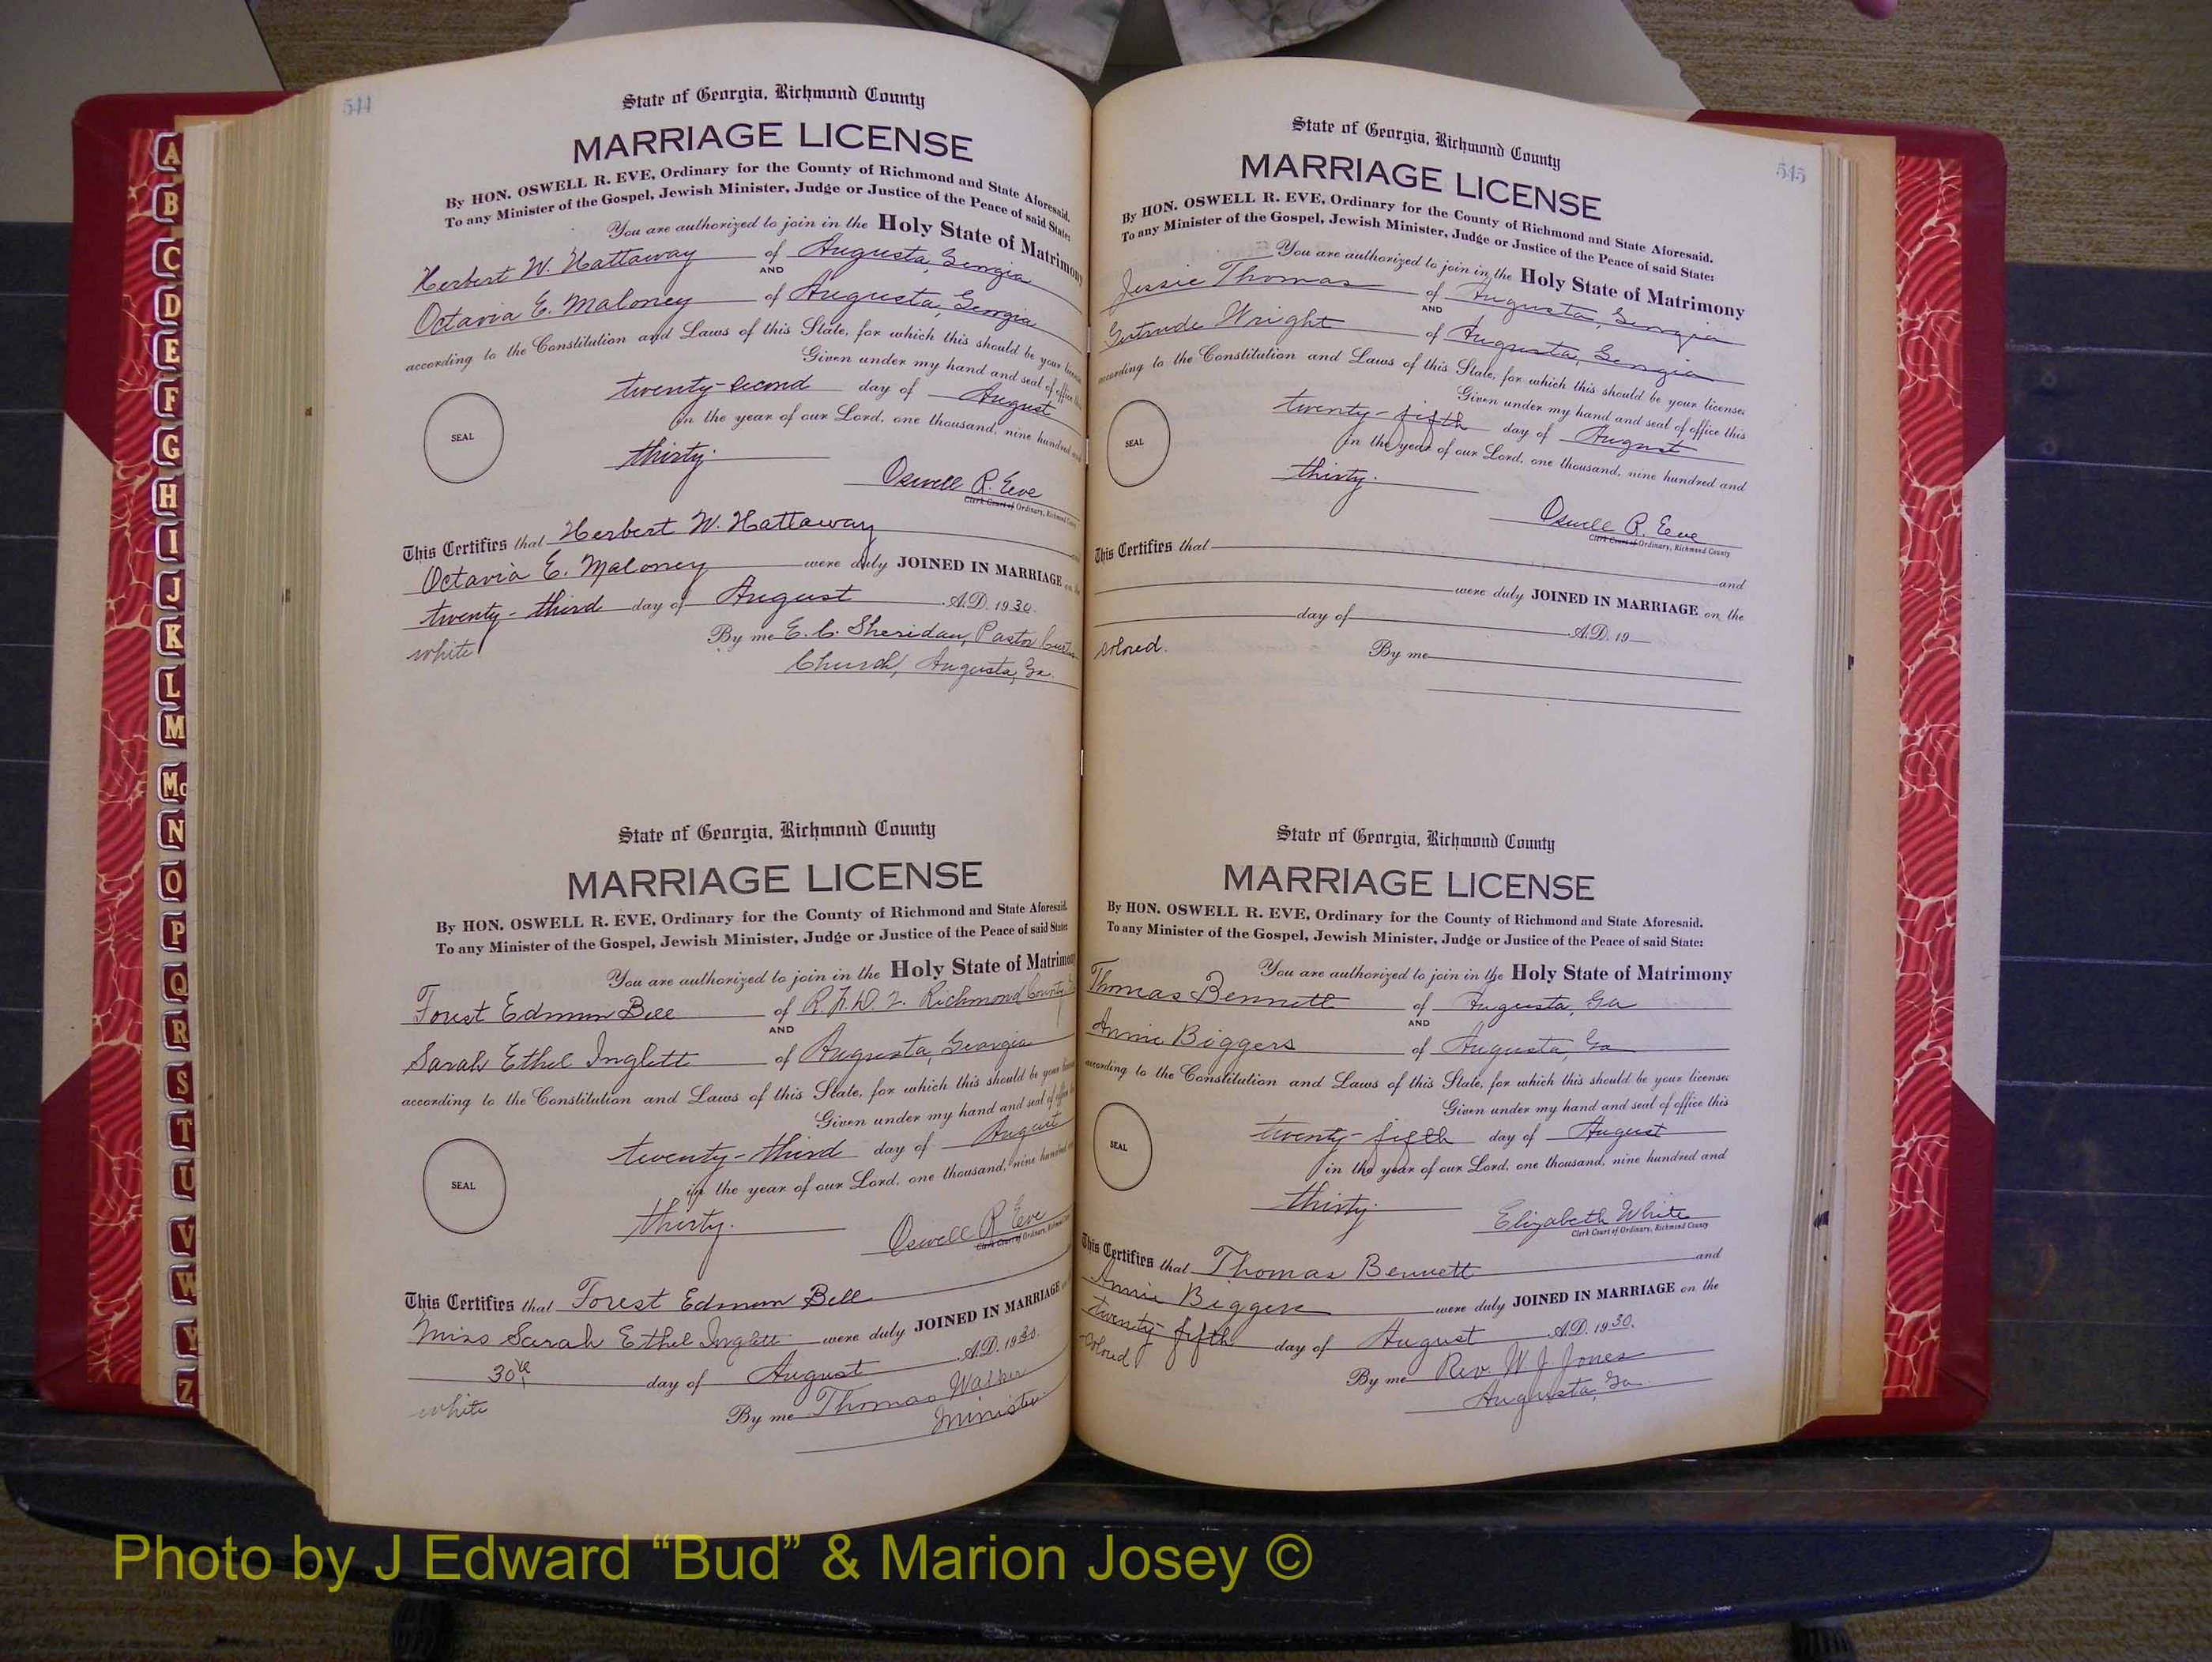 A
B
C
D
E
F
G
H
I
J
K
L
M
Mc
N
O
P
Q
R
S
T
U
V
W
Y
Z
544
State of Georgia, Richmond County
MARRIAGE LICENSE
By HON. OSWELL R. EVE, Ordinary for the County of Richmond and State Aforesaid.
To any Minister of the Gospel, Jewish Minister, Judge or Justice of the Peace of said State:
You are authorized to join in the Holy State of Matrimony
Herbert W. Hattaway of Augusta, Georgia
AND
Octavia E. Maloney of Augusta, Georgia
according to the Constitution and Laws of this State, for which this should be your
Given under my hand and seal of office
twenty-second day of August
SEAL
in the year of our Lord, one thousand, nine hundred
thirty.
Oswell R. Eve
Clerk Court of Ordinary, Richmond
This Certifies that Herbert W. Hattaway
Octavia E. Maloney were duly JOINED IN MARRIAGE on
twenty-third day of August A.D. 1930.
white
By me E. C. Sheridan, Pastor
Church, Augusta, Ga.
State of Georgia, Richmond County
MARRIAGE LICENSE
By HON. OSWELL R. EVE, Ordinary for the County of Richmond and State Aforesaid.
To any Minister of the Gospel, Jewish Minister, Judge or Justice of the Peace of said State:
You are authorized to join in the Holy State of Matrimony
Forest Edmun Bell of R.F.D. 2. Richmond County
AND
Sarah Ethel Inglett of Augusta, Georgia
according to the Constitution and Laws of this State, for which this should be your
Given under my hand and seal of
twenty-third day of August
SEAL
in the year of our Lord, one thousand, nine hundred
thirty.
Oswell R. Eve
Clerk Court of Ordinary, Richmond
This Certifies that Forest Edmun Bell
Miss Sarah Ethel Inglett were duly JOINED IN MARRIAGE
30th day of August A.D. 1930.
white
By me Thomas Walker
Minister
545
State of Georgia, Richmond County
MARRIAGE LICENSE
By HON. OSWELL R. EVE, Ordinary for the County of Richmond and State Aforesaid.
To any Minister of the Gospel, Jewish Minister, Judge or Justice of the Peace of said State:
You are authorized to join in the Holy State of Matrimony
Jessie Thomas of Augusta, Georgia
AND
Gertrude Wright of Augusta, Georgia
according to the Constitution and Laws of this State, for which this should be your license;
Given under my hand and seal of office this
twenty-fifth day of August
SEAL
in the year of our Lord, one thousand, nine hundred and
thirty.
Oswell R. Eve
Clerk Court of Ordinary, Richmond County
This Certifies that
and
were duly JOINED IN MARRIAGE on the
day of A.D. 19
colored.
By me
State of Georgia, Richmond County
MARRIAGE LICENSE
By HON. OSWELL R. EVE, Ordinary for the County of Richmond and State Aforesaid.
To any Minister of the Gospel, Jewish Minister, Judge or Justice of the Peace of said State:
You are authorized to join in the Holy State of Matrimony
Thomas Bennett of Augusta, Ga
AND
Annie Biggers of Augusta, Ga
according to the Constitution and Laws of this State, for which this should be your license;
Given under my hand and seal of office this
twenty-fifth day of August
SEAL
in the year of our Lord, one thousand, nine hundred and
thirty.
Elizabeth White
Clerk Court of Ordinary, Richmond County
This Certifies that Thomas Bennett and
Annie Biggers were duly JOINED IN MARRIAGE on the
twenty-fifth day of August A.D. 1930.
colored
By me Rev. W. J. Jones
Augusta, Ga.
Photo by J Edward “Bud” & Marion Josey ©